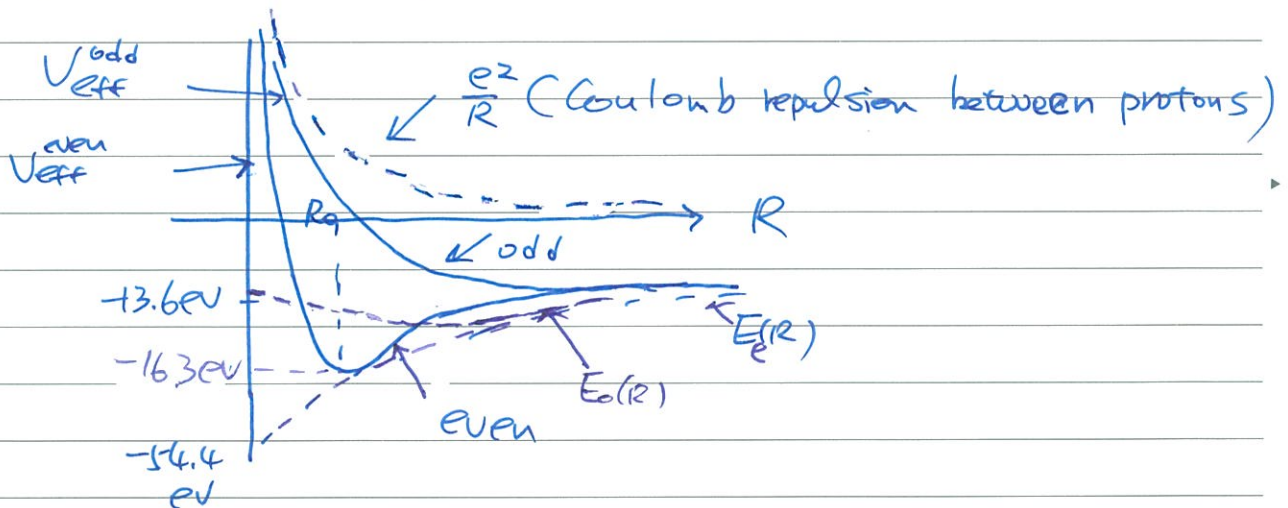 V_eff^odd
e²/R (Coulomb repulsion between protons)
V_eff^even
R₀
R
odd
-13.6eV
E_e(R)
-16.3eV
E_o(R)
even
-54.4
eV